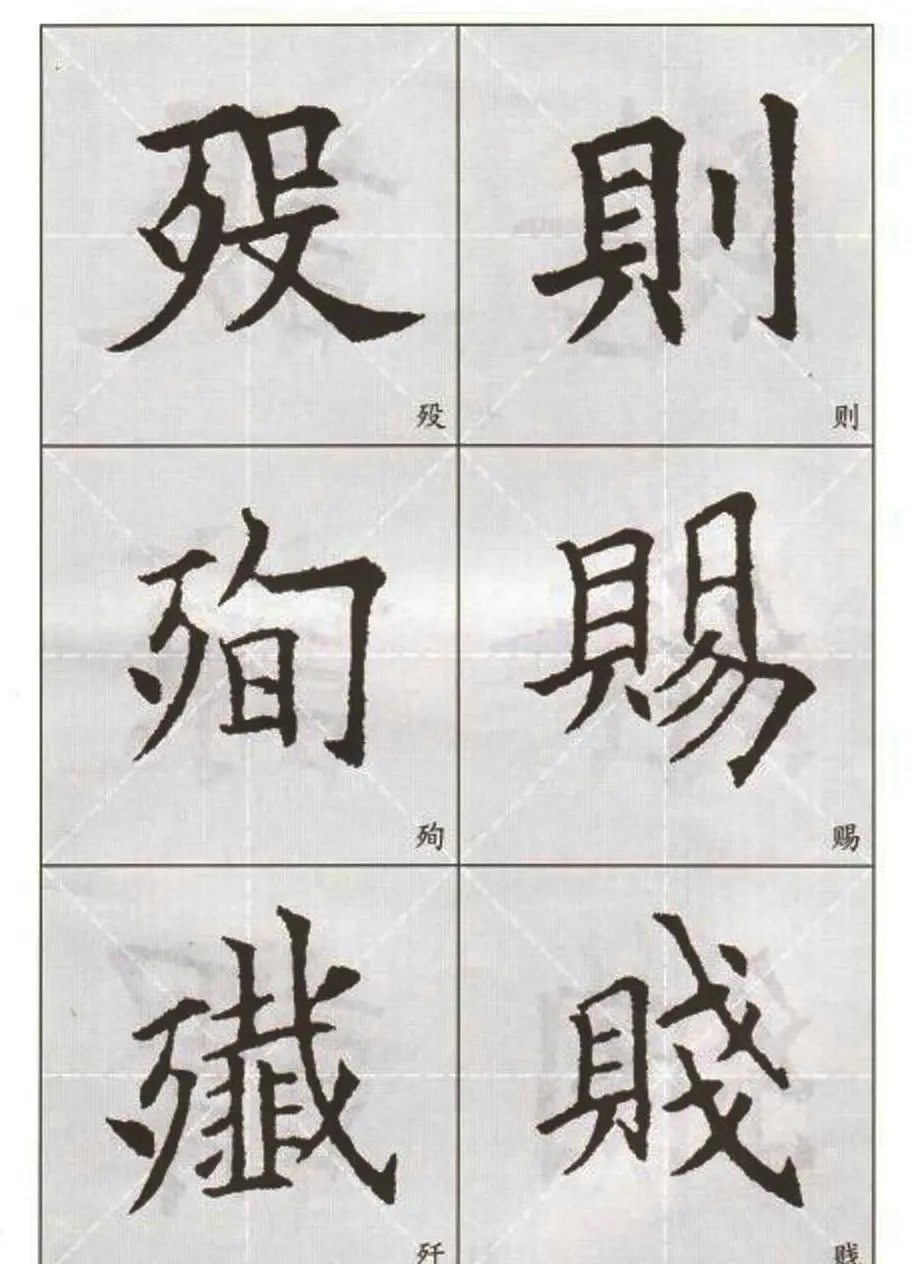 殁 則
殁 则
殉 賜
殉 赐
殲 賤
歼 贱